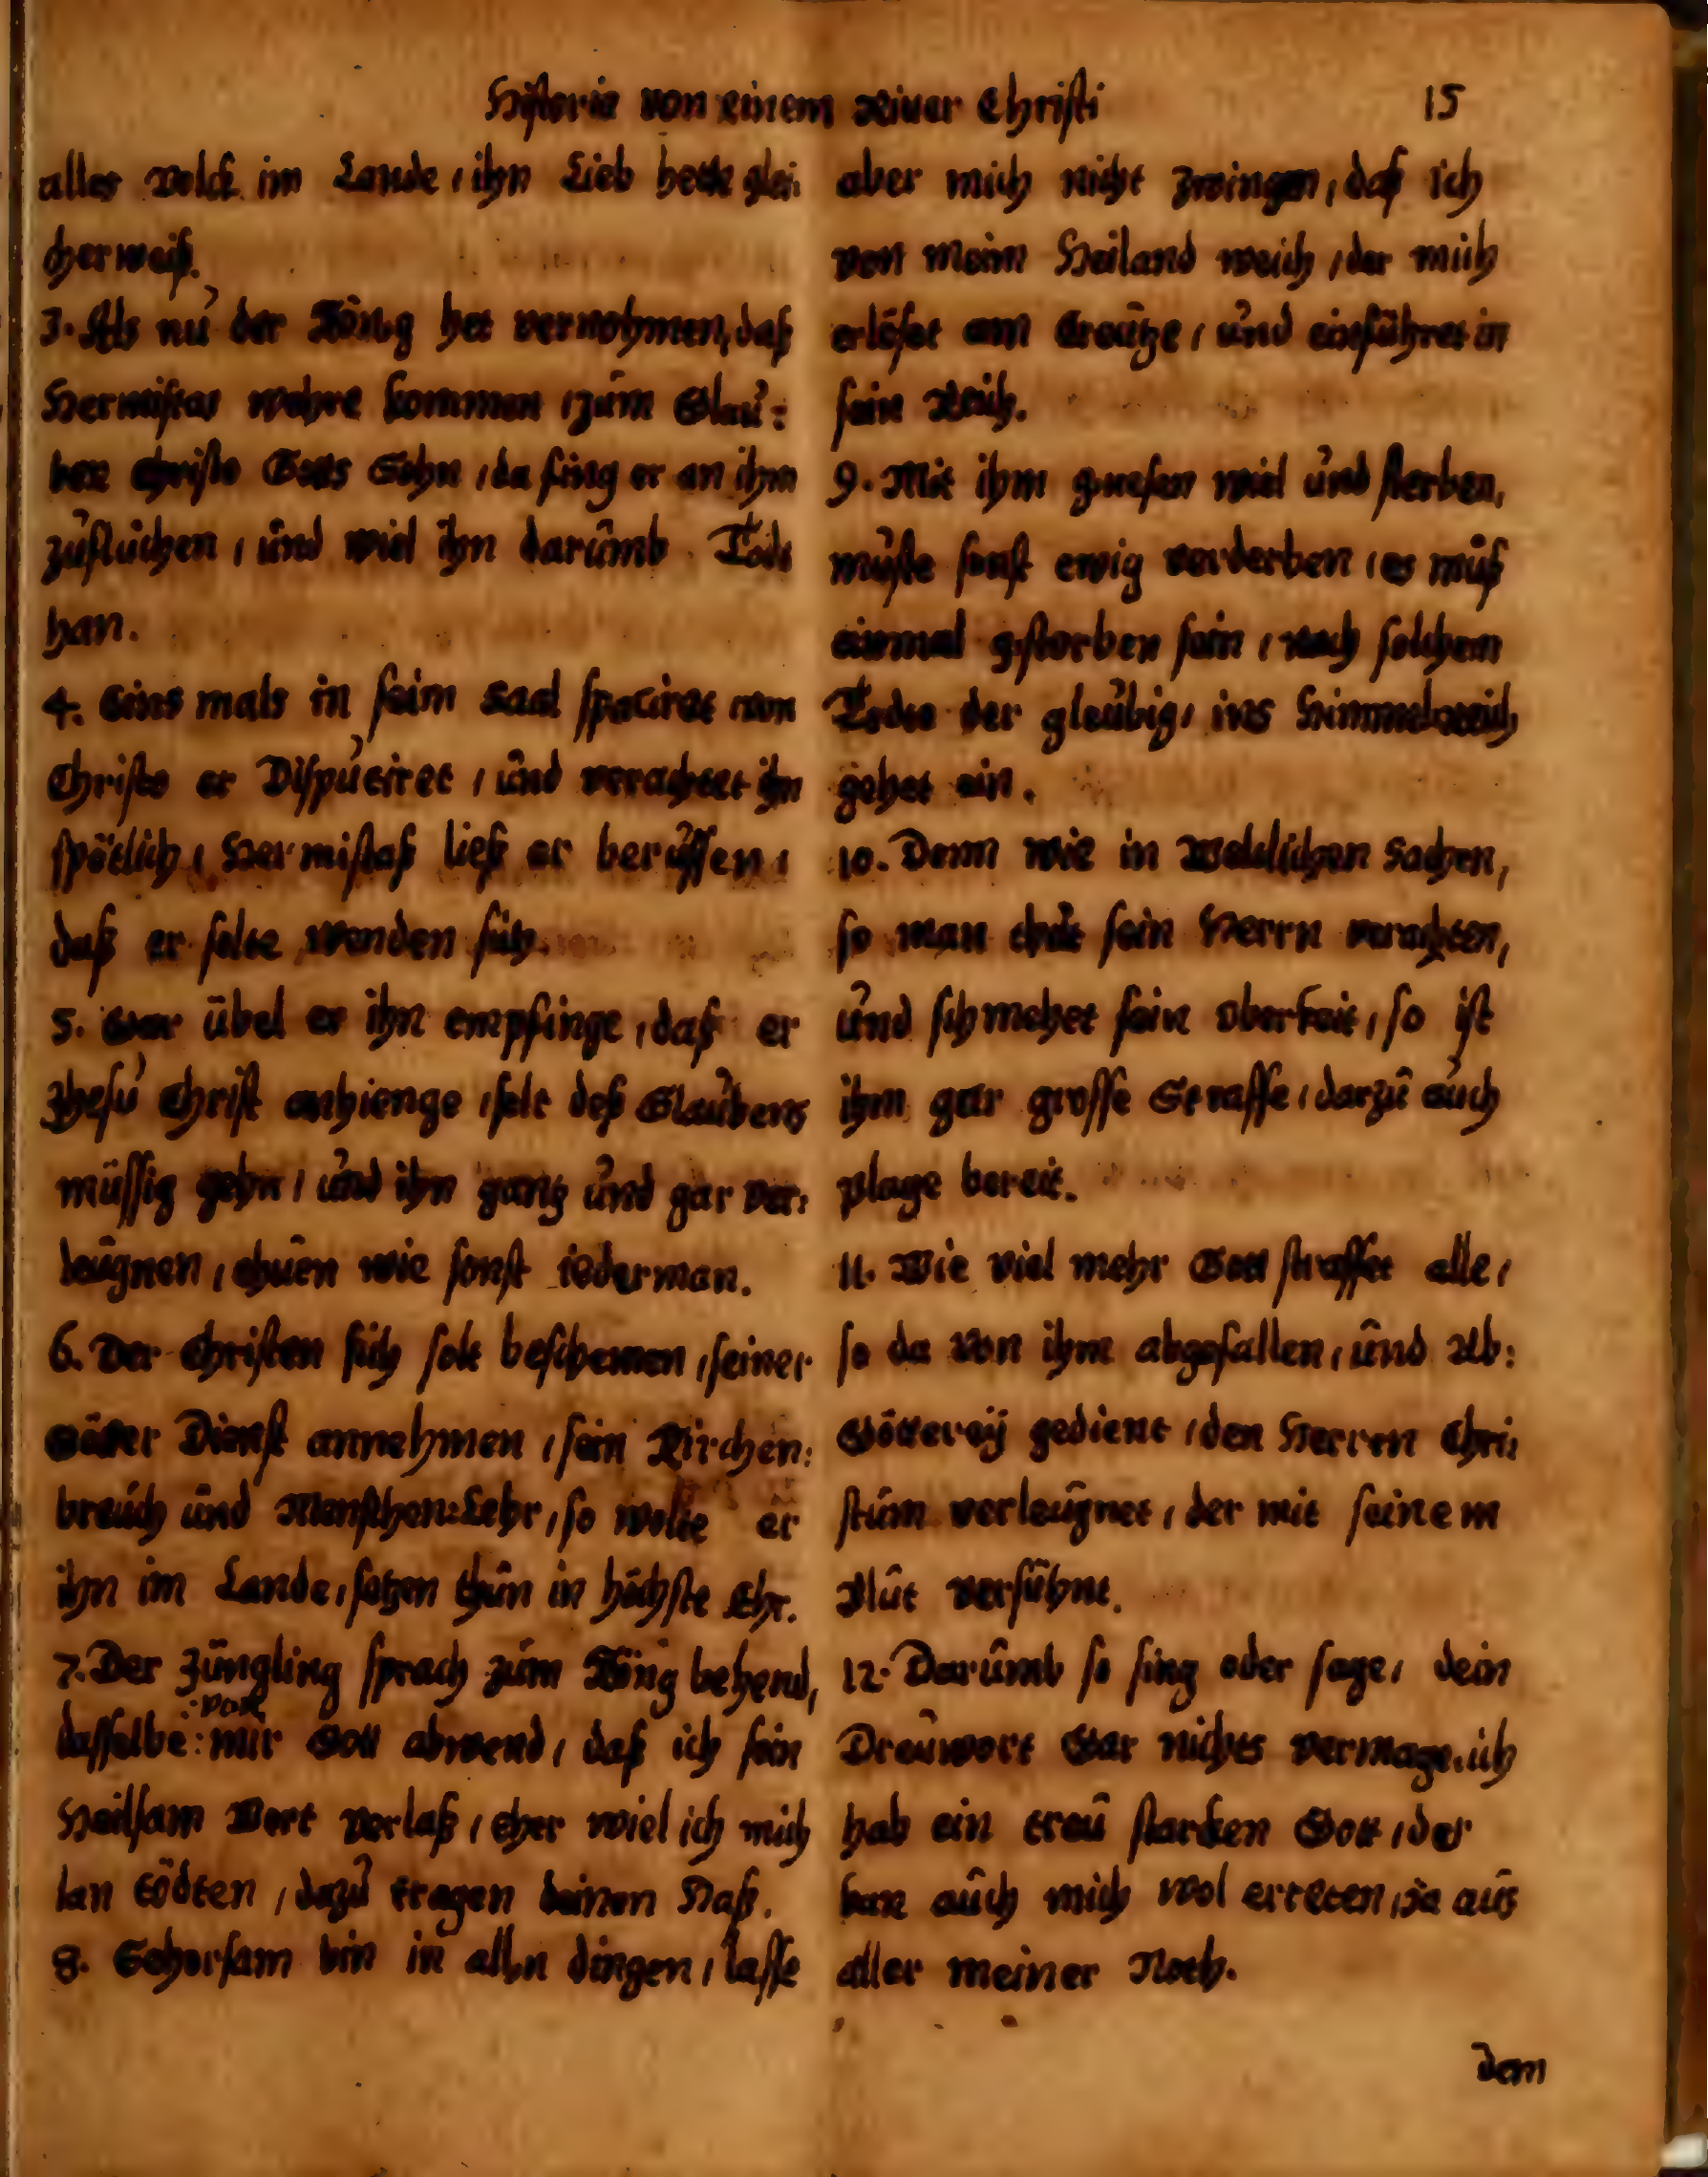 Historie von einem Diener Christi 15
alles volck im Lande, ihn Lieb hette glei:
cher weiß.
3. Als nu der König het vernohmen, daß
Hermistas wehre kommen, zum Glau:
ben Christo Gotts Sohn, da fing er an ihm
zufluchen, und wiel ihn darumb Todt
han.
4. Eins mals in seim Saal spaciret, von
Christo er Disputiret, und verachtet ihn
spötlich, Hermistaß ließ er beruffen,
daß er solte wenden sich.
5. Gar übel er ihn empfinge, daß er
Jhesu Christ anhienge, solt deß Glaubens
müssig gehn, und ihn gantz und gar ver:
leugnen, thuen wie sonst iederman.
6. Der Christen sich solt beschemen, seiner
Götter Dienst annehmen, sein Kirchen:
breuch und Menschen:Lehr, so wolte er
ihn im Lande, setzen thun in höchste Ehr.
7. Der Jüngling sprach zum König behend,
:von
dasselbe: mir Gott abwend, daß ich sein
Heilsam Wort verlaß, eher wiel ich mich
lan tödten, dazu tragen deinen Haß.
8. Gehorsam bin in alln dingen, lasse
aber mich nicht zwingen, daß ich
von meim Heiland weich, der mich
erlöset am Creutze, und einführet in
sein Reich.
9. Mit ihm gnesen wiel und sterben,
müste sonst ewig verderben, es muß
einmal gstorben sein, nach solchem
Todte der gleubig, ins Himmelreich
gehet ein.
10. Denn wie in Weltlichen Sachen,
so man thut sein Herrn verachten,
und schmehet sein Oberkeit, so ist
ihm gar grosse Straffe, darzu auch
plage bereit.
11. Wie viel mehr Gott straffet alle,
so da von ihm abgefallen, und Ab:
Götterey gedient, den Herren Chri:
stum verleugnet, der mit seinem
Blut versühnt.
12. Darumb so sing oder sage, dein
Dreuwort Gar nichts vermage, ich
hab ein treu starcken Gott, der
kan auch mich wol erreten, Ja aus
aller meiner Noth.
dem